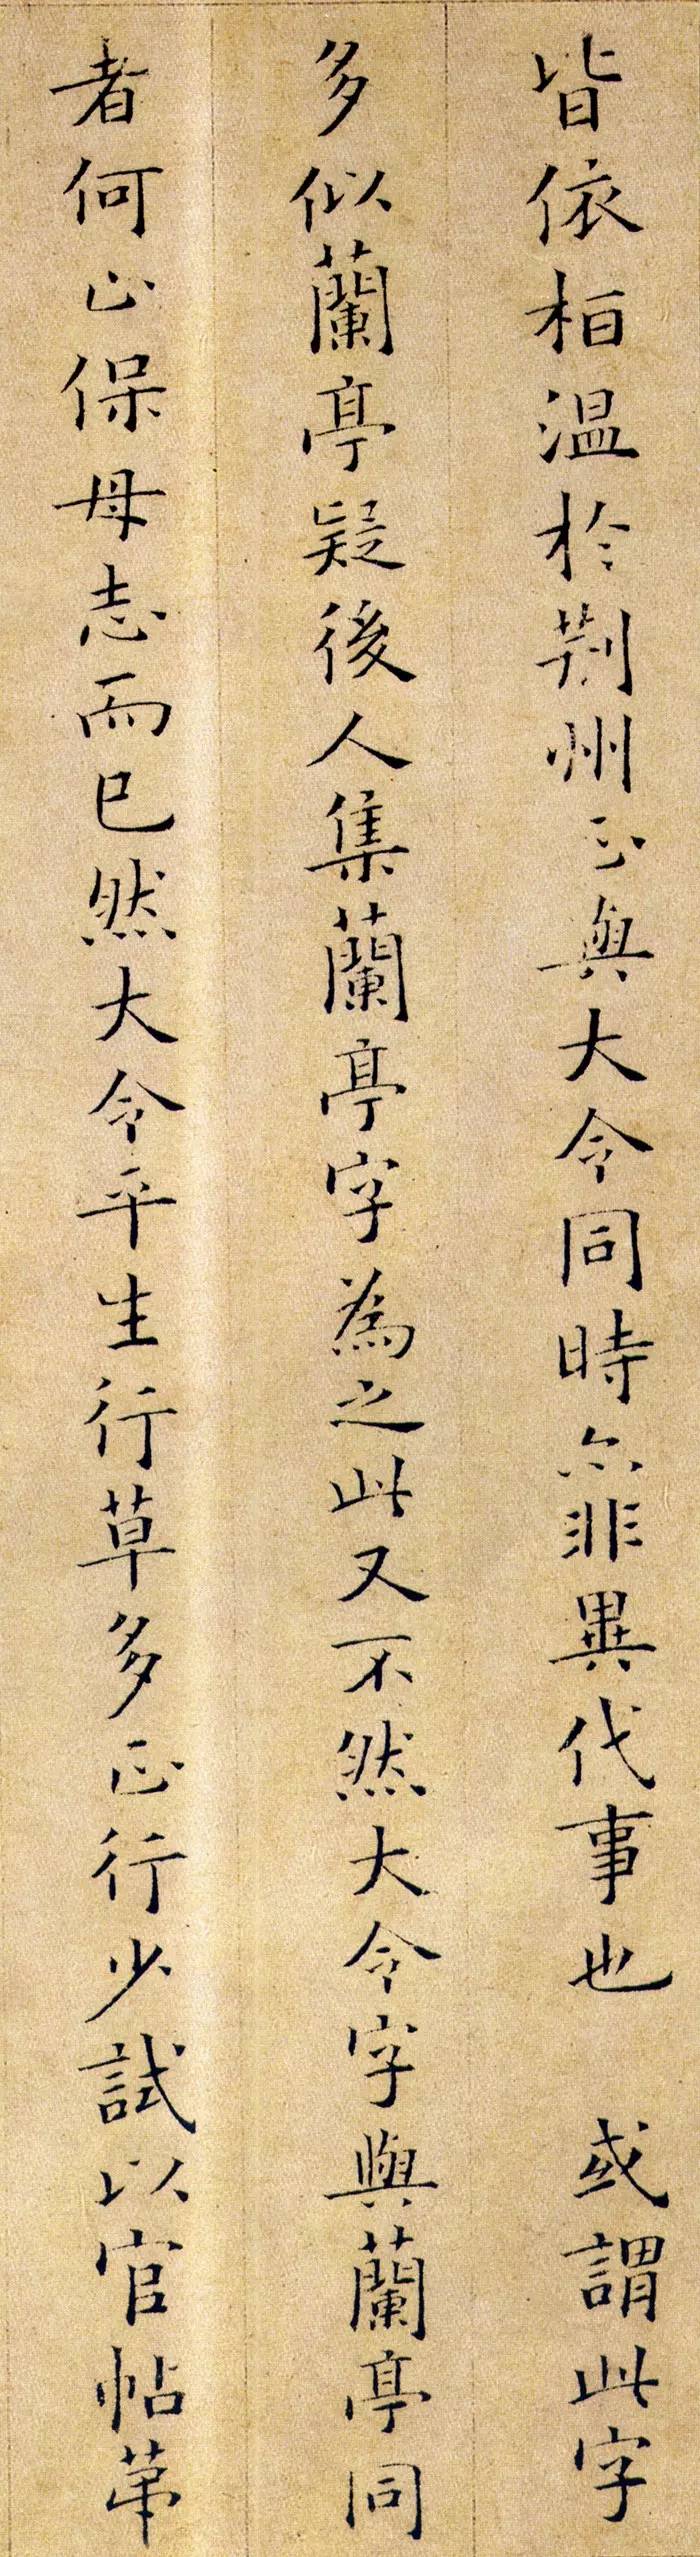 皆依桓温於荆州正與大令同時亦非異代事也 或謂此字
多似蘭亭疑後人集蘭亭字為之此又不然大令字與蘭亭同
者何止保母志而已然大令平生行草多正行少試以官帖苐